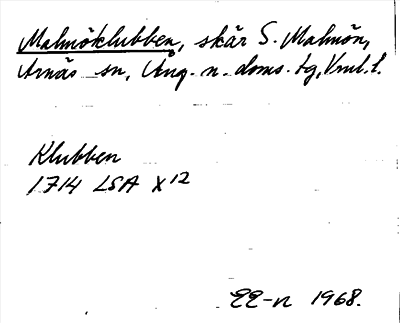 Malmöklubben, skär S. Malmön,
Arnäs sn, Ång. n. doms. tg, Vnrl. l.
Klubben
1714 LSA X12
EE-n 1968.